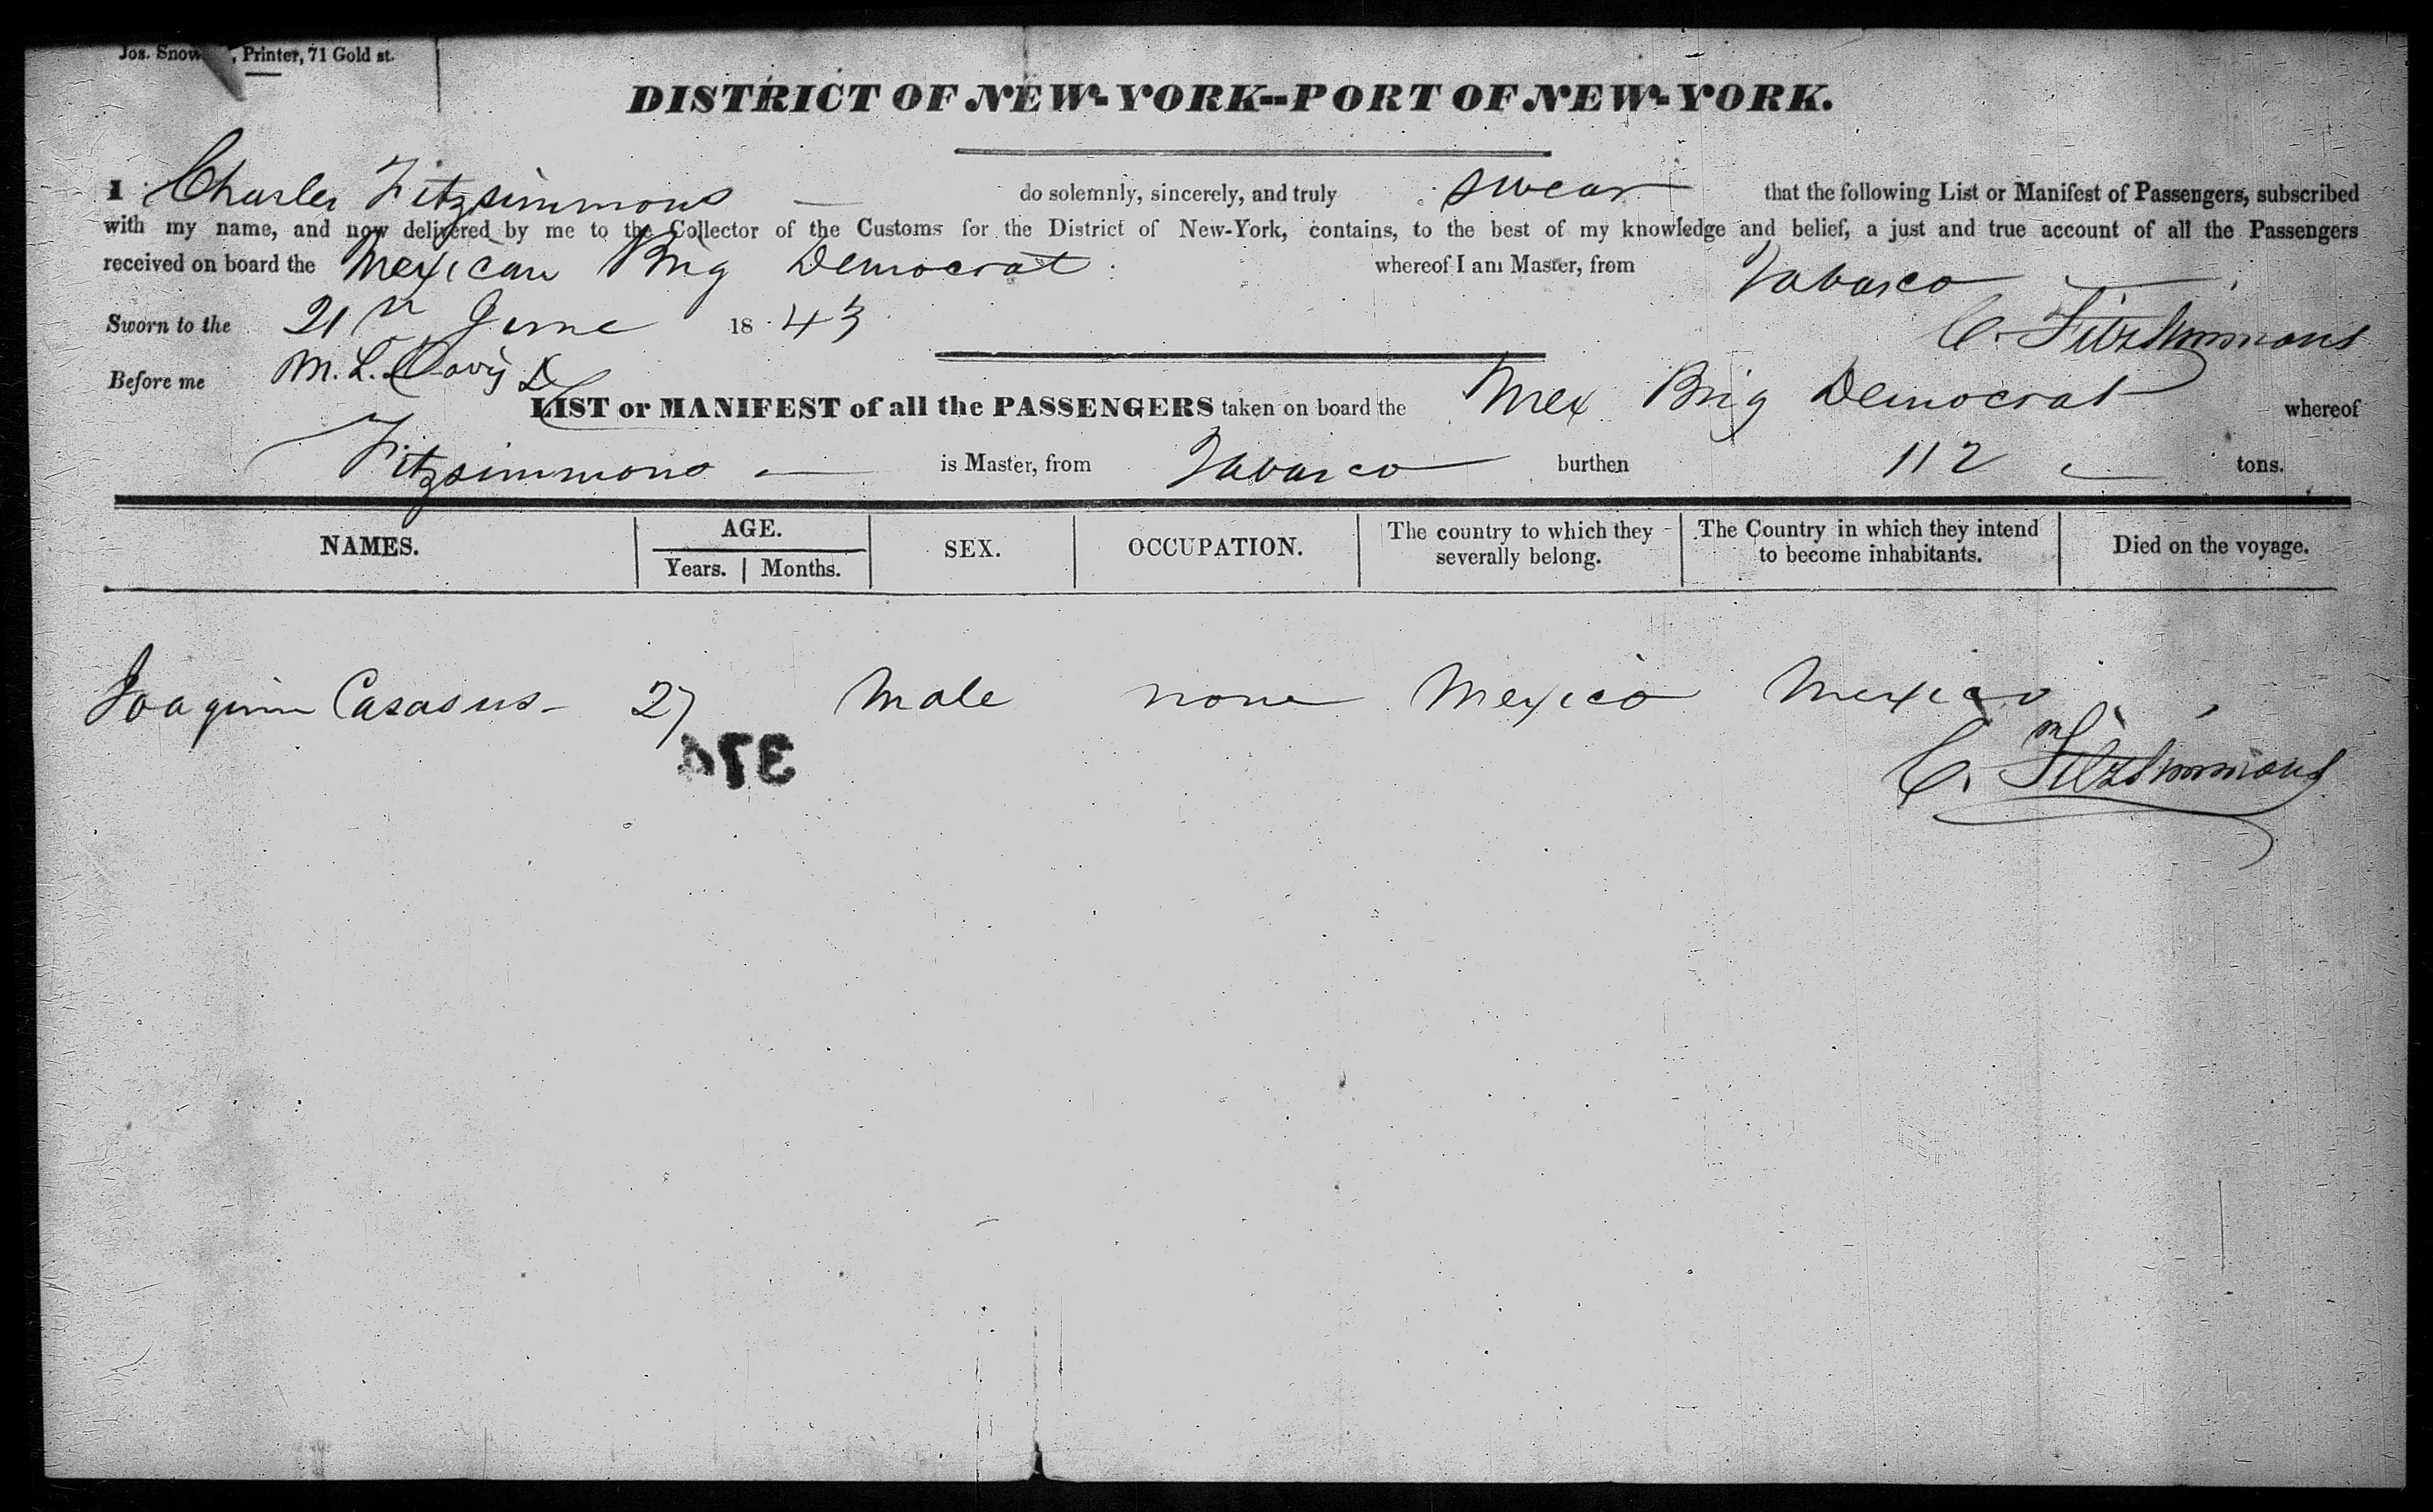 Jos. Snow , Printer, 71 Gold st.
DISTRICT OF NEW-YORK--PORT OF NEW-YORK.
I Charles Fitzsimmons — do solemnly, sincerely, and truly swear that the following List or Manifest of Passengers, subscribed
with my name, and now delivered by me to the Collector of the Customs for the District of New-York, contains, to the best of my knowledge and belief, a just and true account of all the Passengers
received on board the Mexican Brig Democrat whereof I am Master, from Tabasco
Sworn to the 21 June 1843 C. Fitzsimmons
Before me M. L. Davis
LIST or MANIFEST of all the PASSENGERS taken on board the Mex Brig Democrat whereof
Fitzsimmons — is Master, from Tabasco burthen 112 tons.
NAMES. AGE. SEX. OCCUPATION. The country to which they severally belong. The Country in which they intend to become inhabitants. Died on the voyage.
Years. Months.
Joaquin Casasus - 27 Male none Mexico Mexico
C. Fitzsimmons